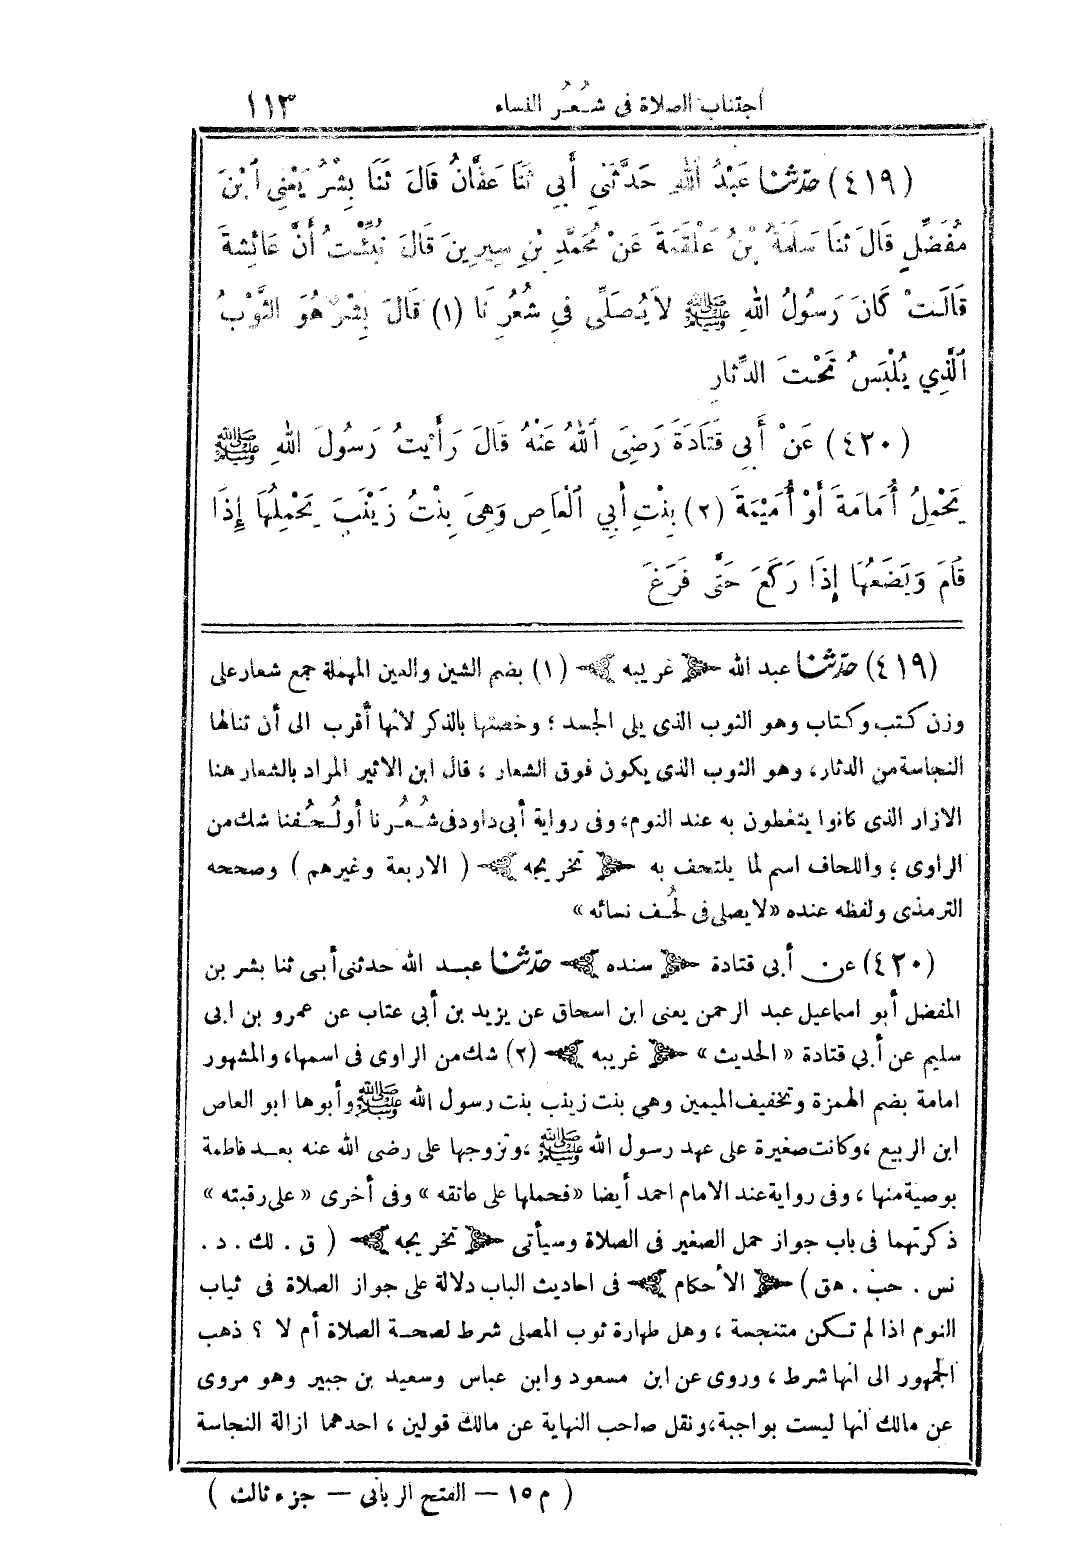 اجتناب الصلاة فى شُعُر النساء ١١٣
(٤١٩) حدّثنا عَبْدُ اللهِ حَدَّثَنِي أَبِي ثَنَا عَفَّانُ قَالَ ثَنَا بِشْرُ يَعْنِي ٱبْنَ
مُفَضَّلٍ قَالَ ثَنَا سَلَمَةُ بْنُ عَلْقَمَةَ عَنْ مُحَمَّدِ بْنِ سِيرِينَ قَالَ نُبِّئْتُ أَنَّ عَائِشَةَ
قَالَتْ كَانَ رَسُولُ اللهِ ﷺ لاَ يُصَلِّى فِي شُعُرِنَا (١) قَالَ بِشْرٌ هُوَ الثَّوْبُ
ٱلَّذِي يُلْبَسُ تَحْتَ الدِّثَارِ
(٤٢٠) عَنْ أَبِي قَتَادَةَ رَضِيَ ٱللهُ عَنْهُ قَالَ رَأَيْتُ رَسُولَ اللهِ ﷺ
يَحْمِلُ أُمَامَةَ أَوْ أُمَيْمَةَ (٢) بِنْتِ أَبِي ٱلْعَاصِ وَهِيَ بِنْتُ زَيْنَبَ يَحْمِلُهَا إِذَا
قَامَ وَيَضَعُهَا إِذَا رَكَعَ حَتَّى فَرَغَ
(٤١٩) حدّثنا عبد الله ﴿ غريبه ﴾ (١) بضم الشين والعين المهملة جمع شعار على
وزن كتب وكتاب وهو الثوب الذى يلى الجسد ؛ وخصتها بالذكر لأنها أقرب الى أن تنالها
النجاسة من الدثار، وهو الثوب الذى يكون فوق الشعار ، قال ابن الاثير المراد بالشعار هنا
الازار الذى كانوا يتغطون به عند النوم، وفى رواية أبى داود فى شُعُرنا أو لُحُفنا شك من
الراوى ؛ واللحاف اسم لما يلتحف به ﴿ تخريجه ﴾ ( الاربعة وغيرهم ) وصححه
الترمذى ولفظه عنده «لا يصلى فى لُحُف نسائه »
(٤٢٠) عن أبى قتادة ﴿ سنده ﴾ حدّثنا عبد الله حدثنى أبى ثنا بشر بن
المفضل أبو اسماعيل عبد الرحمن يعنى ابن اسحاق عن يزيد بن أبى عتاب عن عمرو بن ابى
سليم عن أبى قتادة « الحديث » ﴿ غريبه ﴾ (٢) شك من الراوى فى اسمها، والمشهور
امامة بضم الهمزة وتخفيف الميمين وهى بنت زينب بنت رسول الله ﷺ وأبوها ابو العاص
ابن الربيع ، وكانت صغيرة على عهد رسول الله ﷺ ، وتزوجها على رضى الله عنه بعد فاطمة
بوصية منها ، وفى رواية عند الامام احمد أيضا «فحملها على عاتقه » وفى أخرى « على رقبته »
ذكرتهما فى باب جواز حمل الصغير فى الصلاة وسيأتى ﴿ تخريجه ﴾ ( ق . لك . د .
نس . حب . هق ) ﴿ الأحكام ﴾ فى احاديث الباب دلالة على جواز الصلاة فى ثياب
النوم اذا لم تكن متنجسة ، وهل طهارة ثوب المصلى شرط لصحة الصلاة أم لا ؟ ذهب
الجمهور الى انها شرط ، وروى عن ابن مسعود وابن عباس وسعيد بن جبير وهو مروى
عن مالك انها ليست بواجبة، ونقل صاحب النهاية عن مالك قولين ، احدهما ازالة النجاسة
( م ١٥ — الفتح الربانى — جزء ثالث )